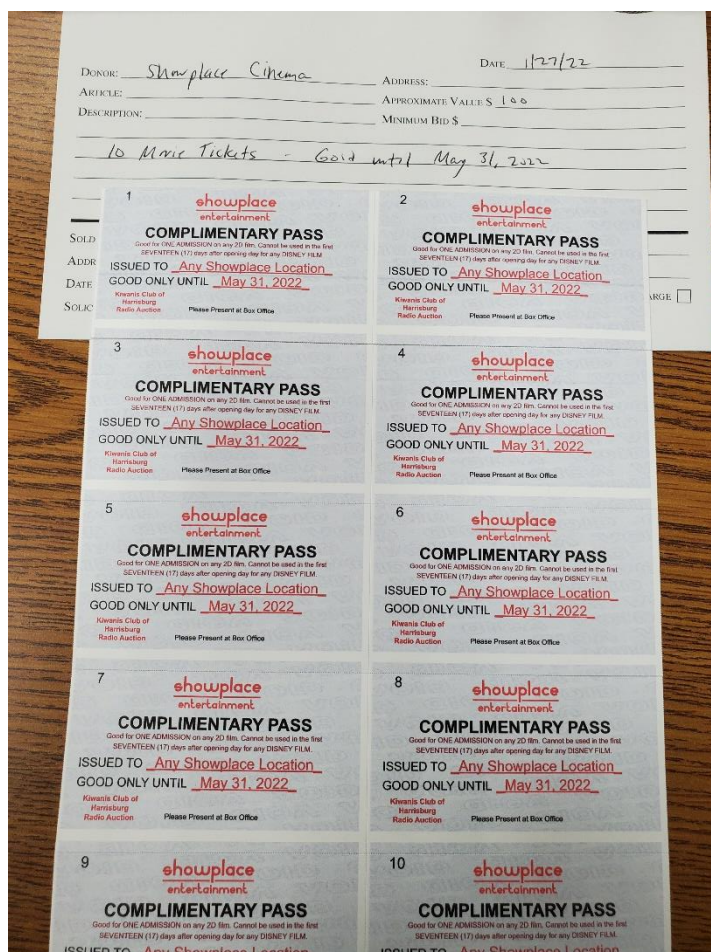 DATE 1/27/22
DONOR: Showplace Cinema
ADDRESS:
ARTICLE:
APPROXIMATE VALUE $ 100
DESCRIPTION:
MINIMUM BID $
10 Movie Tickets - Good until May 31, 2022
SOLD
ADDR
DATE
SOLIC
ARGE
1
showplace
entertainment
COMPLIMENTARY PASS
Good for ONE ADMISSION on any 2D film. Cannot be used in the first
SEVENTEEN (17) days after opening day for any DISNEY FILM.
ISSUED TO Any Showplace Location
GOOD ONLY UNTIL May 31, 2022
Kiwanis Club of
Harrisburg
Radio Auction
Please Present at Box Office
2
showplace
entertainment
COMPLIMENTARY PASS
Good for ONE ADMISSION on any 2D film. Cannot be used in the first
SEVENTEEN (17) days after opening day for any DISNEY FILM.
ISSUED TO Any Showplace Location
GOOD ONLY UNTIL May 31, 2022
Kiwanis Club of
Harrisburg
Radio Auction
Please Present at Box Office
3
showplace
entertainment
COMPLIMENTARY PASS
Good for ONE ADMISSION on any 2D film. Cannot be used in the first
SEVENTEEN (17) days after opening day for any DISNEY FILM.
ISSUED TO Any Showplace Location
GOOD ONLY UNTIL May 31, 2022
Kiwanis Club of
Harrisburg
Radio Auction
Please Present at Box Office
4
showplace
entertainment
COMPLIMENTARY PASS
Good for ONE ADMISSION on any 2D film. Cannot be used in the first
SEVENTEEN (17) days after opening day for any DISNEY FILM.
ISSUED TO Any Showplace Location
GOOD ONLY UNTIL May 31, 2022
Kiwanis Club of
Harrisburg
Radio Auction
Please Present at Box Office
5
showplace
entertainment
COMPLIMENTARY PASS
Good for ONE ADMISSION on any 2D film. Cannot be used in the first
SEVENTEEN (17) days after opening day for any DISNEY FILM.
ISSUED TO Any Showplace Location
GOOD ONLY UNTIL May 31, 2022
Kiwanis Club of
Harrisburg
Radio Auction
Please Present at Box Office
6
showplace
entertainment
COMPLIMENTARY PASS
Good for ONE ADMISSION on any 2D film. Cannot be used in the first
SEVENTEEN (17) days after opening day for any DISNEY FILM.
ISSUED TO Any Showplace Location
GOOD ONLY UNTIL May 31, 2022
Kiwanis Club of
Harrisburg
Radio Auction
Please Present at Box Office
7
showplace
entertainment
COMPLIMENTARY PASS
Good for ONE ADMISSION on any 2D film. Cannot be used in the first
SEVENTEEN (17) days after opening day for any DISNEY FILM.
ISSUED TO Any Showplace Location
GOOD ONLY UNTIL May 31, 2022
Kiwanis Club of
Harrisburg
Radio Auction
Please Present at Box Office
8
showplace
entertainment
COMPLIMENTARY PASS
Good for ONE ADMISSION on any 2D film. Cannot be used in the first
SEVENTEEN (17) days after opening day for any DISNEY FILM.
ISSUED TO Any Showplace Location
GOOD ONLY UNTIL May 31, 2022
Kiwanis Club of
Harrisburg
Radio Auction
Please Present at Box Office
9
showplace
entertainment
COMPLIMENTARY PASS
Good for ONE ADMISSION on any 2D film. Cannot be used in the first
SEVENTEEN (17) days after opening day for any DISNEY FILM.
ISSUED TO Any Showplace Location
10
showplace
entertainment
COMPLIMENTARY PASS
Good for ONE ADMISSION on any 2D film. Cannot be used in the first
SEVENTEEN (17) days after opening day for any DISNEY FILM.
ISSUED TO Any Showplace Location